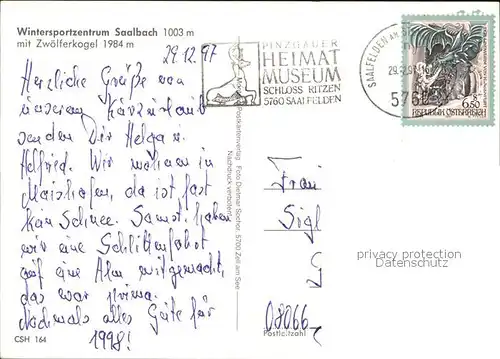 Wintersportzentrum Saalbach 1003 m
mit Zwölferkogel 1984 m
29.12.97
Herzliche Grüße von
unserem Kurzurlaub
senden Dir Helga u.
Helfried. Wir wohnen in
Maishofen, da ist fast
kein Schnee. Sonst haben
wir eine Schlittenfahrt
auf eine Alm mitgemacht,
das war prima.
Nochmals alles Gute für
1998!
CSH 164
Postkartenverlag Foto Dietmar Sochor, 5700 Zell am See
Nachdruck verboten
PINZGAUER
HEIMAT
MUSEUM
SCHLOSS RITZEN
5760 SAALFELDEN
SAALFELDEN AM
5760
6.50
REPUBLIK ÖSTERREICH
Frau
Sigl
privacy protection
Datenschutz
08066
Postleitzahl